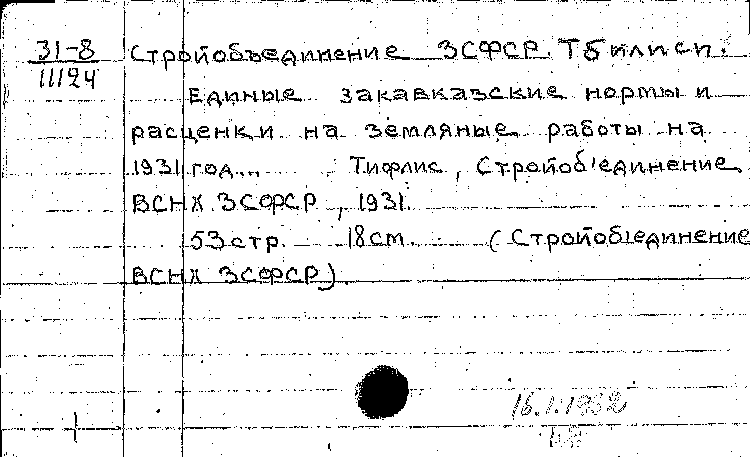 31-8
11124
Стройобъединение ЗСФСР. Тбилиси.
Единые закавказские нормы и
расценки на земляные работы на
1931 год... Тифлис, Стройоб'единение
ВСНХ ЗСФСР, 1931.
53 стр. 18 см. (Стройоб'единение
ВСНХ ЗСФСР).
16.1.1932